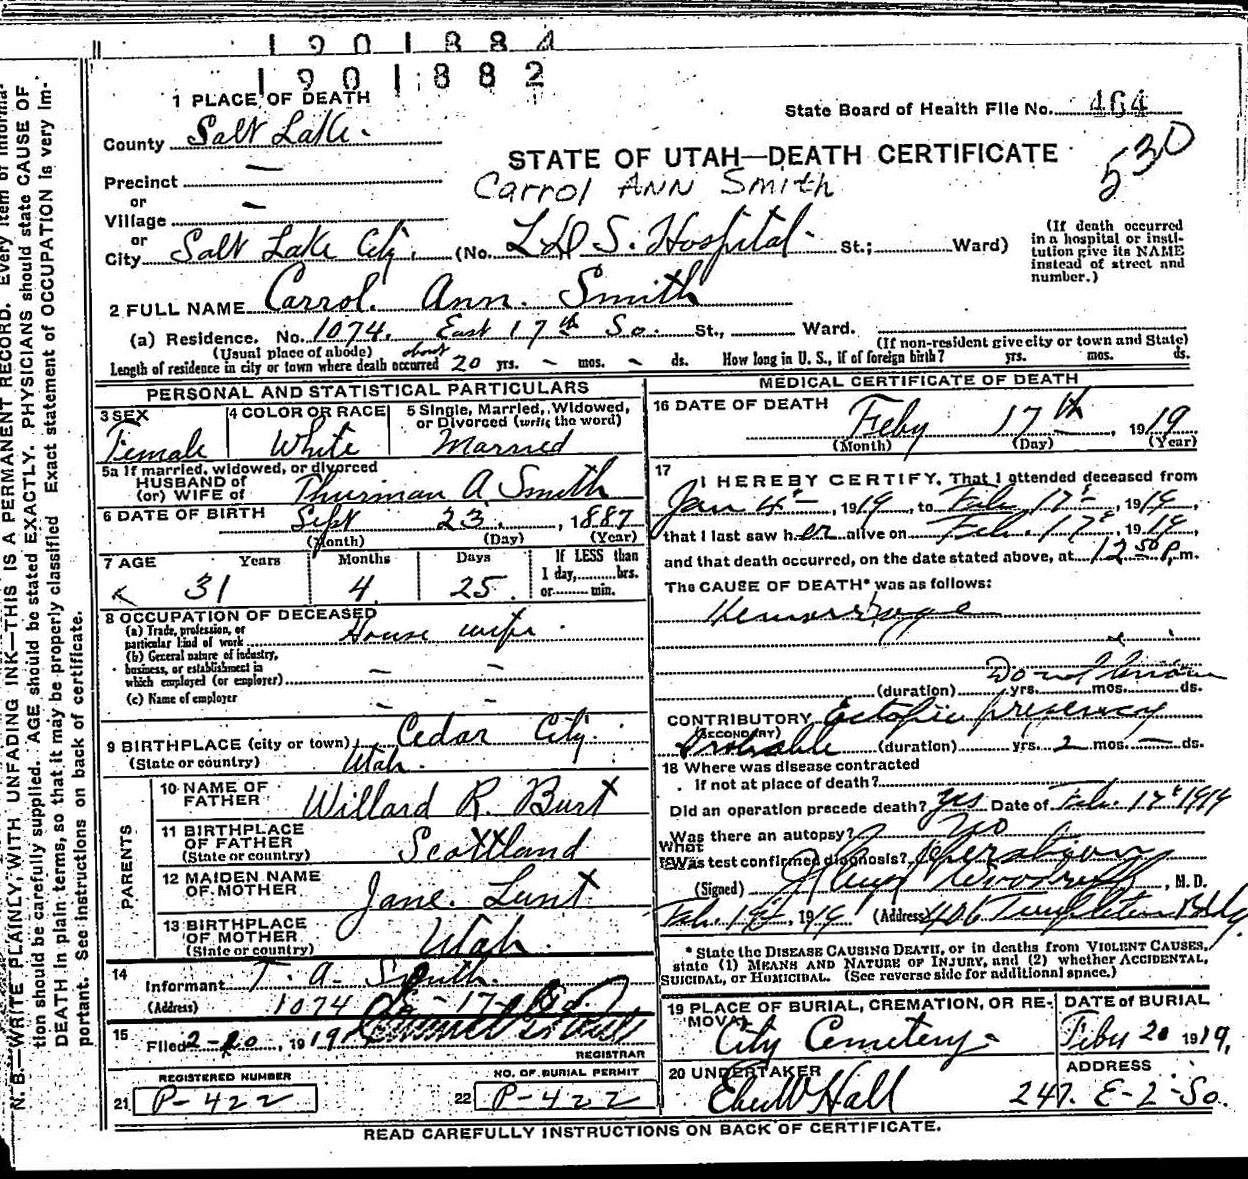 1901884
1901882
1 PLACE OF DEATH
State Board of Health File No. 464
County Salt Lake.
530
STATE OF UTAH—DEATH CERTIFICATE
Carrol ANN Smith
Precinct —
or
Village —
or
City Salt Lake City. (No. L.D.S. Hospital St.; Ward)
(If death occurred in a hospital or insti-
tution give its NAME
instead of street and
number.)
2 FULL NAME Carrol. Ann. Smith
(a) Residence. No. 1074. East 17th So. St., Ward.
(Usual place of abode)
(If non-resident give city or town and State)
Length of residence in city or town where death occurred about 20 yrs. — mos. — ds. How long in U. S., if of foreign birth? yrs. mos. ds.
PERSONAL AND STATISTICAL PARTICULARS
3 SEX
Female
4 COLOR OR RACE
White
5 Single, Married, Widowed,
or Divorced (write the word)
Married
5a If married, widowed, or divorced
HUSBAND of
(or) WIFE of Thurman A Smith
6 DATE OF BIRTH Sept 23. , 1887
(Month) (Day) (Year)
7 AGE Years Months Days If LESS than
1 day, hrs.
or min.
31 4 25.
8 OCCUPATION OF DECEASED
(a) Trade, profession, or
particular kind of work House wife.
(b) General nature of industry,
business, or establishment in
which employed (or employer) — —
(c) Name of employer — —
9 BIRTHPLACE (city or town) Cedar City.
(State or country) Utah.
PARENTS
10 NAME OF
FATHER Willard R. Burt
11 BIRTHPLACE
OF FATHER
(State or country) Scottland
12 MAIDEN NAME
OF MOTHER Jane. Lunt
13 BIRTHPLACE
OF MOTHER
(State or country) Utah.
14
Informant T. A. Smith.
(Address) 1074 E-17-So.
15
Filed 2-20, 1919
REGISTRAR
REGISTERED NUMBER
21 P-422
NO. OF BURIAL PERMIT
22 P-422
MEDICAL CERTIFICATE OF DEATH
16 DATE OF DEATH
Feby 17th, 1919
(Month) (Day) (Year)
17
I HEREBY CERTIFY, That I attended deceased from
Jan 4th, 1919, to Feb. 17th, 1919,
that I last saw her alive on Feb. 17th, 1919,
and that death occurred, on the date stated above, at 12 50 P.m.
The CAUSE OF DEATH* was as follows:
Hemorrhage
Do not know
(duration) yrs. mos. ds.
CONTRIBUTORY Ectopic pregnancy
(SECONDARY)
Probable (duration) yrs. 2 mos. — ds.
18 Where was disease contracted
If not at place of death?
Did an operation precede death? Yes Date of Feb. 17th 1919
Was there an autopsy? No
What
Was test confirmed diagnosis? Operation
(Signed) Woodruff, M.D.
1919 (Address) 406 Templeton Bldg.
* State the DISEASE CAUSING DEATH, or in deaths from VIOLENT CAUSES,
state (1) MEANS AND NATURE OF INJURY, and (2) whether ACCIDENTAL,
SUICIDAL, OR HOMICIDAL. (See reverse side for additional space.)
19 PLACE OF BURIAL, CREMATION, OR RE-
MOVAL
City Cemetery-
DATE of BURIAL
Feby 20 1919,
20 UNDERTAKER
Eber W Hall
ADDRESS
247. E-2-So.
READ CAREFULLY INSTRUCTIONS ON BACK OF CERTIFICATE.
N. B.—WRITE PLAINLY, WITH UNFADING INK—THIS IS A PERMANENT RECORD. Every item of informa-
tion should be carefully supplied. AGE should be stated EXACTLY. PHYSICIANS should state CAUSE OF
DEATH in plain terms, so that it may be properly classified. Exact statement of OCCUPATION is very im-
portant. See instructions on back of certificate.